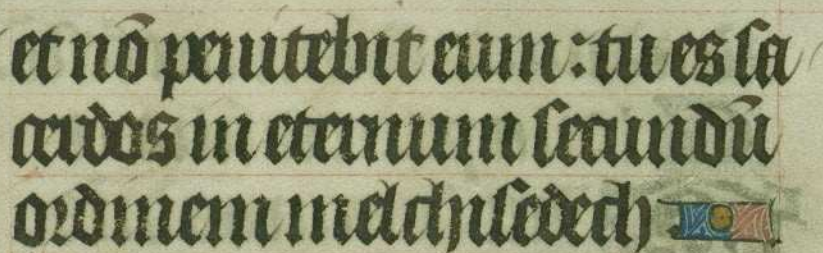 et nō penitebit eum : tu es sa
cerdos in eternum secundū
ordinem melchisedech